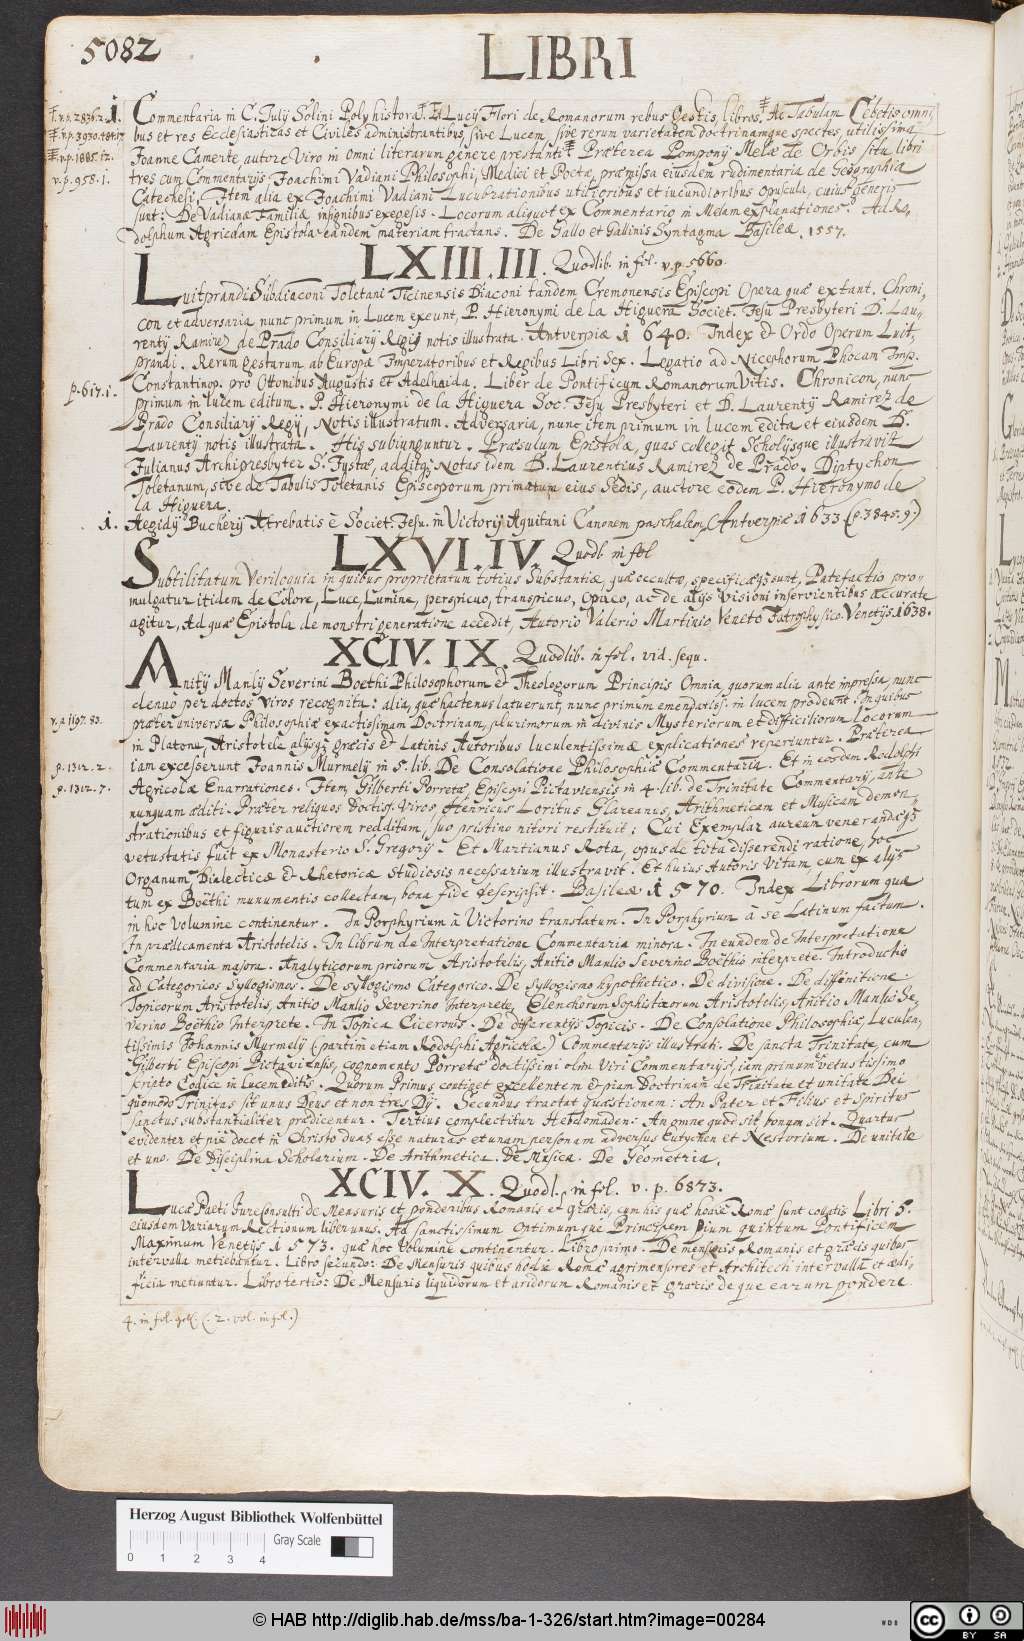 5082
LIBRI
v.p. 2836.2. 1. Commentaria in C. Julij Solini Polyhistora. Et Lucij Flori de Romanorum rebus Gestis, libros, Ac Tabulam Cebetis omni,
v.p. 3930. bus et res Ecclesiasticas et Civiles administrantibus, sive Lucem, sive rerum varietatem doctrinamque spectes, utilissima
v.p. 1885.12. Joanne Camerte autore Viro in omni literarum genere prestanti Præterea Pomponij Melæ de Orbis situ libri
v.p. 958.1. tres cum Commentarijs Joachimi Vadiani Philosophi, Medici et Poetæ, præmissa eiusdem rudimentaria de Geographia
Catechesi, Item alia ex Joachimi Vadiani Lucubrationibus utilioribus et iucundioribus opuscula, cuius generis
sunt: De Vadianæ Familiæ insignibus exegesis. Locorum aliquot ex Commentario in Melam explanationes. Ad Ro,
dolphum Agricolam Epistola eandem materiam tractans. De Gallo et Gallinis Syntagma Basileæ, 1557.
LXIII.III. Quodlib. in fol. v.p. 5660.
Luitprandi Subdiaconi Toletani Ticinensis Diaconi tandem Cremonensis Episcopi Opera quæ extant. Chroni,
con et adversaria nunc primum in Lucem exeunt, P. Hieronymi de la Higuera Societ. Jesu Presbyteri D. Lau,
rentij Ramirez de Prado Consiliarij Regij notis illustrata. Antverpiæ 1640. Index et Ordo Operum Luit,
prandi. Rerum gestarum ab Europæ Imperatoribus et Regibus Libri Sex. Legatio ad Nicephorum Phocam Imp.
p. 617.1. Constantinop. pro Ottonibus Augustis et Adelhaida. Liber de Pontificum Romanorum Vitis. Chronicon, nunc
primum in lucem editum. P. Hieronymi de la Higuera Soc. Jesu Presbyteri et D. Laurentij Ramirez de
Prado Consiliarij Regij, Notis illustratum. Adversaria, nunc item primum in lucem edita et eiusdem D.
Laurentij notis illustrata. His subiunguntur. Præsulum Epistolæ, quas colegit Scholijsque illustravit
Julianus Archipresbyter S. Justæ, additis Notas idem D. Laurentius Ramirez de Prado. Diptychon
Toletanum, sive de Tabulis Toletanis Episcoporum primatum eius Sedis, auctore eodem P. Hieronymo de
la Higuera
1. Aegidij Bucherij Atrebatis è Societ. Jesu. in Victorij Aquitani Canonem paschalem, Antverpiæ 1633 (p. 3845. 9.)
LXVI.IV. Quodl. in fol
Subtilitatum Veriloquia in quibus proprietatum totius Substantiæ, quæ occultæ, specificæqz sunt, Patefactio pro,
mulgatur itidem de Colore, Luce, Lumine, perspicuo, transpicuo, Opaco, ac de alijs Visioni inservientibus accurate
agitur, Ad quæ Epistola de monstri generatione accedit, Autorio Valerio Martinio Veneto Jatrophysico. Venetijs 1638.
XCIV.IX. Quodlib. in fol. vid. sequ.
Anitij Manlij Severini Boethi Philosophorum et Theologorum Principis Omnia, quorum alia ante impressa, nunc
denuo per doctos Viros recognita: alia, quæ hactenus latuerunt, nunc primum emendatiss. in lucem prodeunt. In quibus
v.p. 1197.83. præter universa Philosophiæ exactissimam Doctrinam, plurimorum in divinis Mysteriorum et difficilium Locorum
in Platone, Aristotele alijsqz græcis et Latinis Autoribus luculentissimæ explicationes reperiuntur. Præterea
p. 1312.2. iam excesserunt Joannis Murmelij in 5. lib. De Consolatione Philosophiæ Commentaria. Et in eorden Rodolphi
p. 1312.7. Agricolæ Enarrationes. Item, Gilberti Porretæ, Episcopi Pictaviensis in 4. lib. de Trinitate Commentarij, ante
nunquam æditi. Præter reliquos doctiss. Viros Henricus Loritus Glareanus, Arithmeticam et Musicam demon,
strationibus et figuris auctiorem redditam, suo pristino nitori restituit: Cui Exemplar aureum venerandæqz
vetustatis fuit ex Monasterio S. Gregorij. Et Martianus Rota, opus de tota disserendi ratione, hoc
Organum, Dialecticæ et Rhetoricæ Studiosis necessarium illustravit. Et huius Autoris Vitam, cum ex alijs
tum ex Boethi munumentis collectam, bona fide descripsit. Basileæ 1570. Index Librorum quæ
in hoc Volumine continentur. In Porphyrium à Victorino translatum. In Porphyrium à se Latinum factum.
In prædicamenta Aristotelis. In librum de Interpretatione Commentaria minora. In eundem de Interpretatione
Commentaria majora. Analyticorum priorum, Aristotelis, Anitio Manlio Severino Boëthio interprete. Introductio
ad Categoricos Syllogismos. De syllogismo Categorico. De syllogismo hypothetico. De divisione. De diffinitione.
Topicorum Aristotelis, Anitio Manlio Severino Interprete, Elenchorum Sophistarum Aristotelis, Anitio Manlio Se,
verino Boëthio Interprete. In Topica Ciceronis. De differentijs Topicis. De Consolatione Philosophiæ, Luculen,
tissimis Johannis Murmelij (partim etiam Rodolphi Agricolæ) Commentarijs illustrati. De sancta Trinitate, cum
Gilberti Episcopi Pictaviensis, cognomento Porretæ doctissimi olim Viri Commentarijs, iam primum vetustissimo
scripto Codice in lucem editis. Quorum Primus contiget excellentem et piam doctrinam de Trinitate et unitate Dei
quomodo Trinitas sit unus Deus et non tres Dij. Secundus tractat quæstionem: An Pater et Filius et Spiritus
sanctus substantialiter prædicentur. Tertius complectitur Hebdomaden: An omne quod sit bonum sit. Quartus
evidenter et piè docet in Christo duas esse naturas et unam personam adversus Eutychen et Nestorium. De unitate
et uno. De Disciplina Scholarium. De Arithmetica. De Musica. De Geometria.
XCIV. X. Quodl. in fol. v. p. 6873.
Lucæ Pæti Jureconsulti de Mensuris et ponderibus Romanis et græcis, cum his quæ hodie Romæ sunt collatis Libri 5.
eiusdem Variarum Rectionum liber unus. Ad sanctissimum Optimumque Principem Pium quintum Pontificem
Maximum Venetijs 1573. quæ hoc Volumine continentur. Libro primo. De mensuris Romanis et græcis quibus
intervalla metiebantur. Libro secundo: De Mensuris quibus hodie Romæ agrimensores et Architecti intervalla et ædi,
ficia metiuntur. Libro tertio: De Mensuris liquidorum et aridorum Romanis et græcis deque earum pondere
4. in fol. (. 2. vol. in fol.)
Herzog August Bibliothek Wolfenbüttel
Gray Scale
0 1 2 3 4
© HAB http://diglib.hab.de/mss/ba-1-326/start.htm?image=00284
WDB
cc BY SA